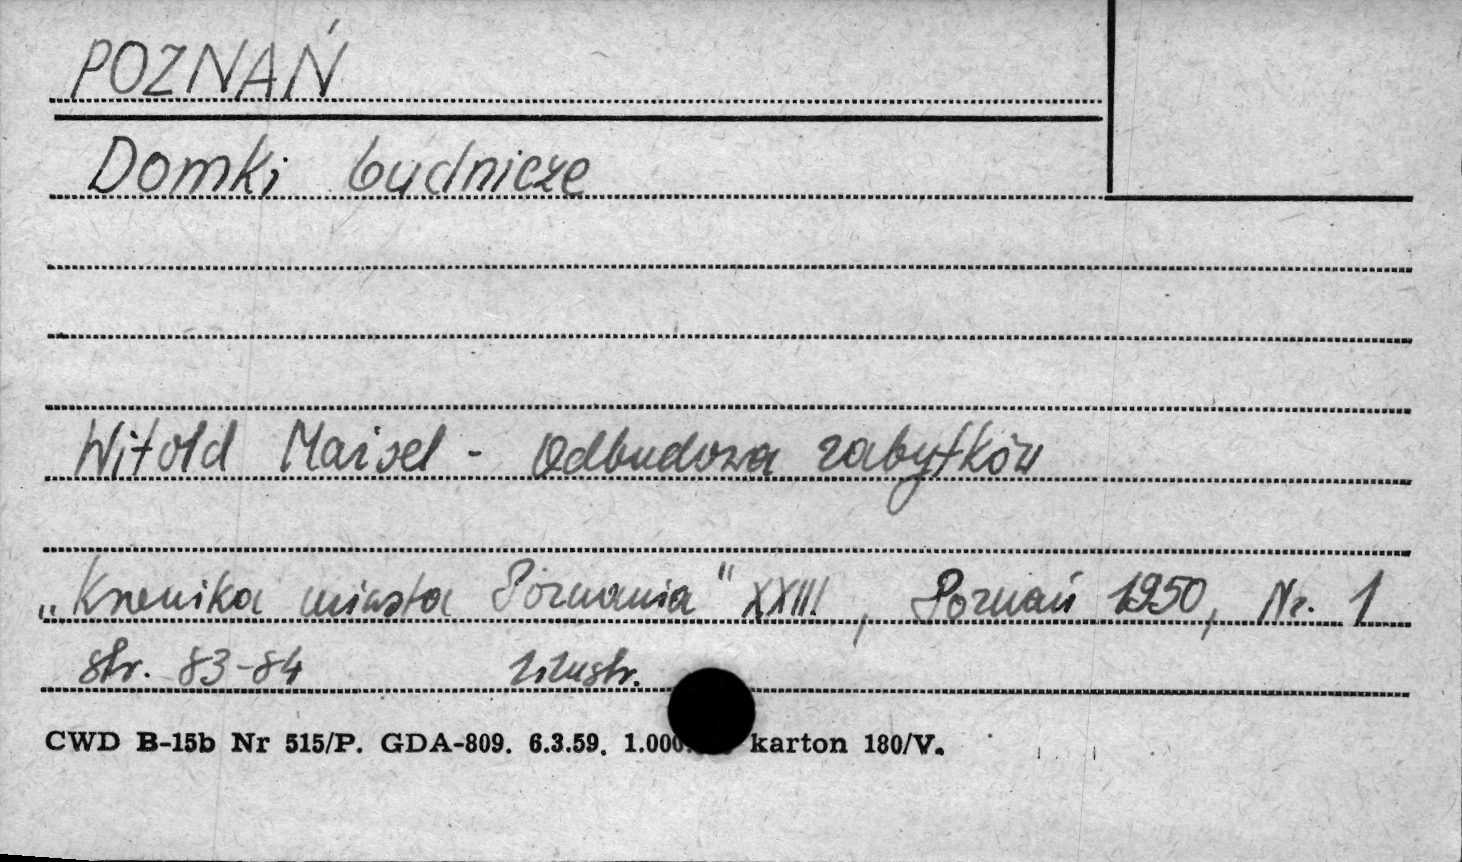 POZNAŃ
Domki budnicze
Witold Maisel - Odbudowa zabytków
„Kronika miasta Poznania" XXIII, Poznań 1950, Nr. 1
str. 83-84 1 ilustr.
CWD B-15b Nr 515/P. GDA-809. 6.3.59. karton 180/V.